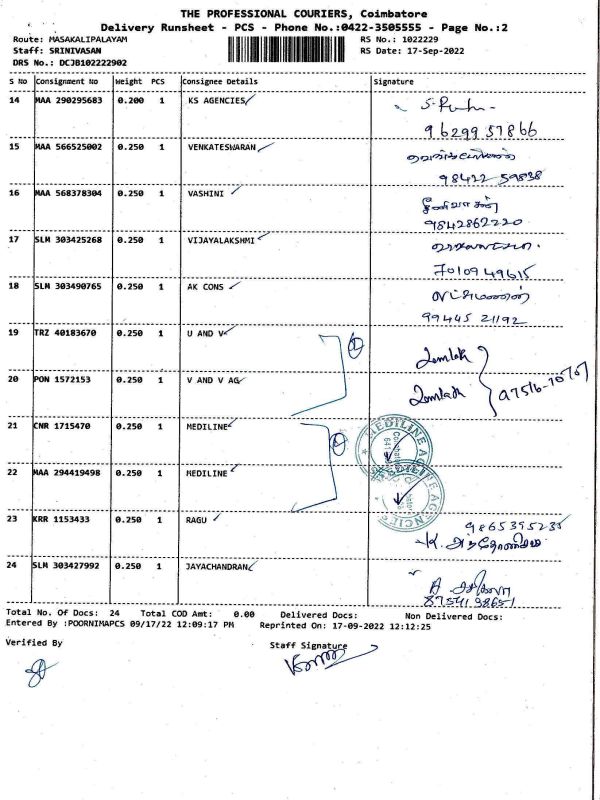 THE PROFESSIONAL COURIERS, Coimbatore
Delivery Runsheet - PCS - Phone No.:0422-3505555 - Page No.:2
Route: MASAKALIPALAYAM RS No.: 1022229
Staff: SRINIVASAN RS Date: 17-Sep-2022
DRS No.: DCJB102222902
S No Consignment No Weight PCS Consignee Details Signature
14 MAA 290295683 0.200 1 KS AGENCIES
9629957866
15 MAA 566525002 0.250 1 VENKATESWARAN
98422 59838
16 MAA 568378304 0.250 1 VASHINI
சீனிவாசன்
9842862220
17 SLM 303425268 0.250 1 VIJAYALAKSHMI
7010949615
18 SLM 303490765 0.250 1 AK CONS
லட்சுமணன்
99445 21192
19 TRZ 40183670 0.250 1 U AND V
20 PON 1572153 0.250 1 V AND V AG
21 CNR 1715470 0.250 1 MEDILINE
MEDILINE AGENCIES
22 MAA 294419498 0.250 1 MEDILINE
23 KRR 1153433 0.250 1 RAGU
24 SLM 303427992 0.250 1 JAYACHANDRAN
8754198651
Total No. Of Docs: 24 Total COD Amt: 0.00 Delivered Docs: Non Delivered Docs:
Entered By :POORNIMAPCS 09/17/22 12:09:17 PM Reprinted On: 17-09-2022 12:12:25
Verified By Staff Signature